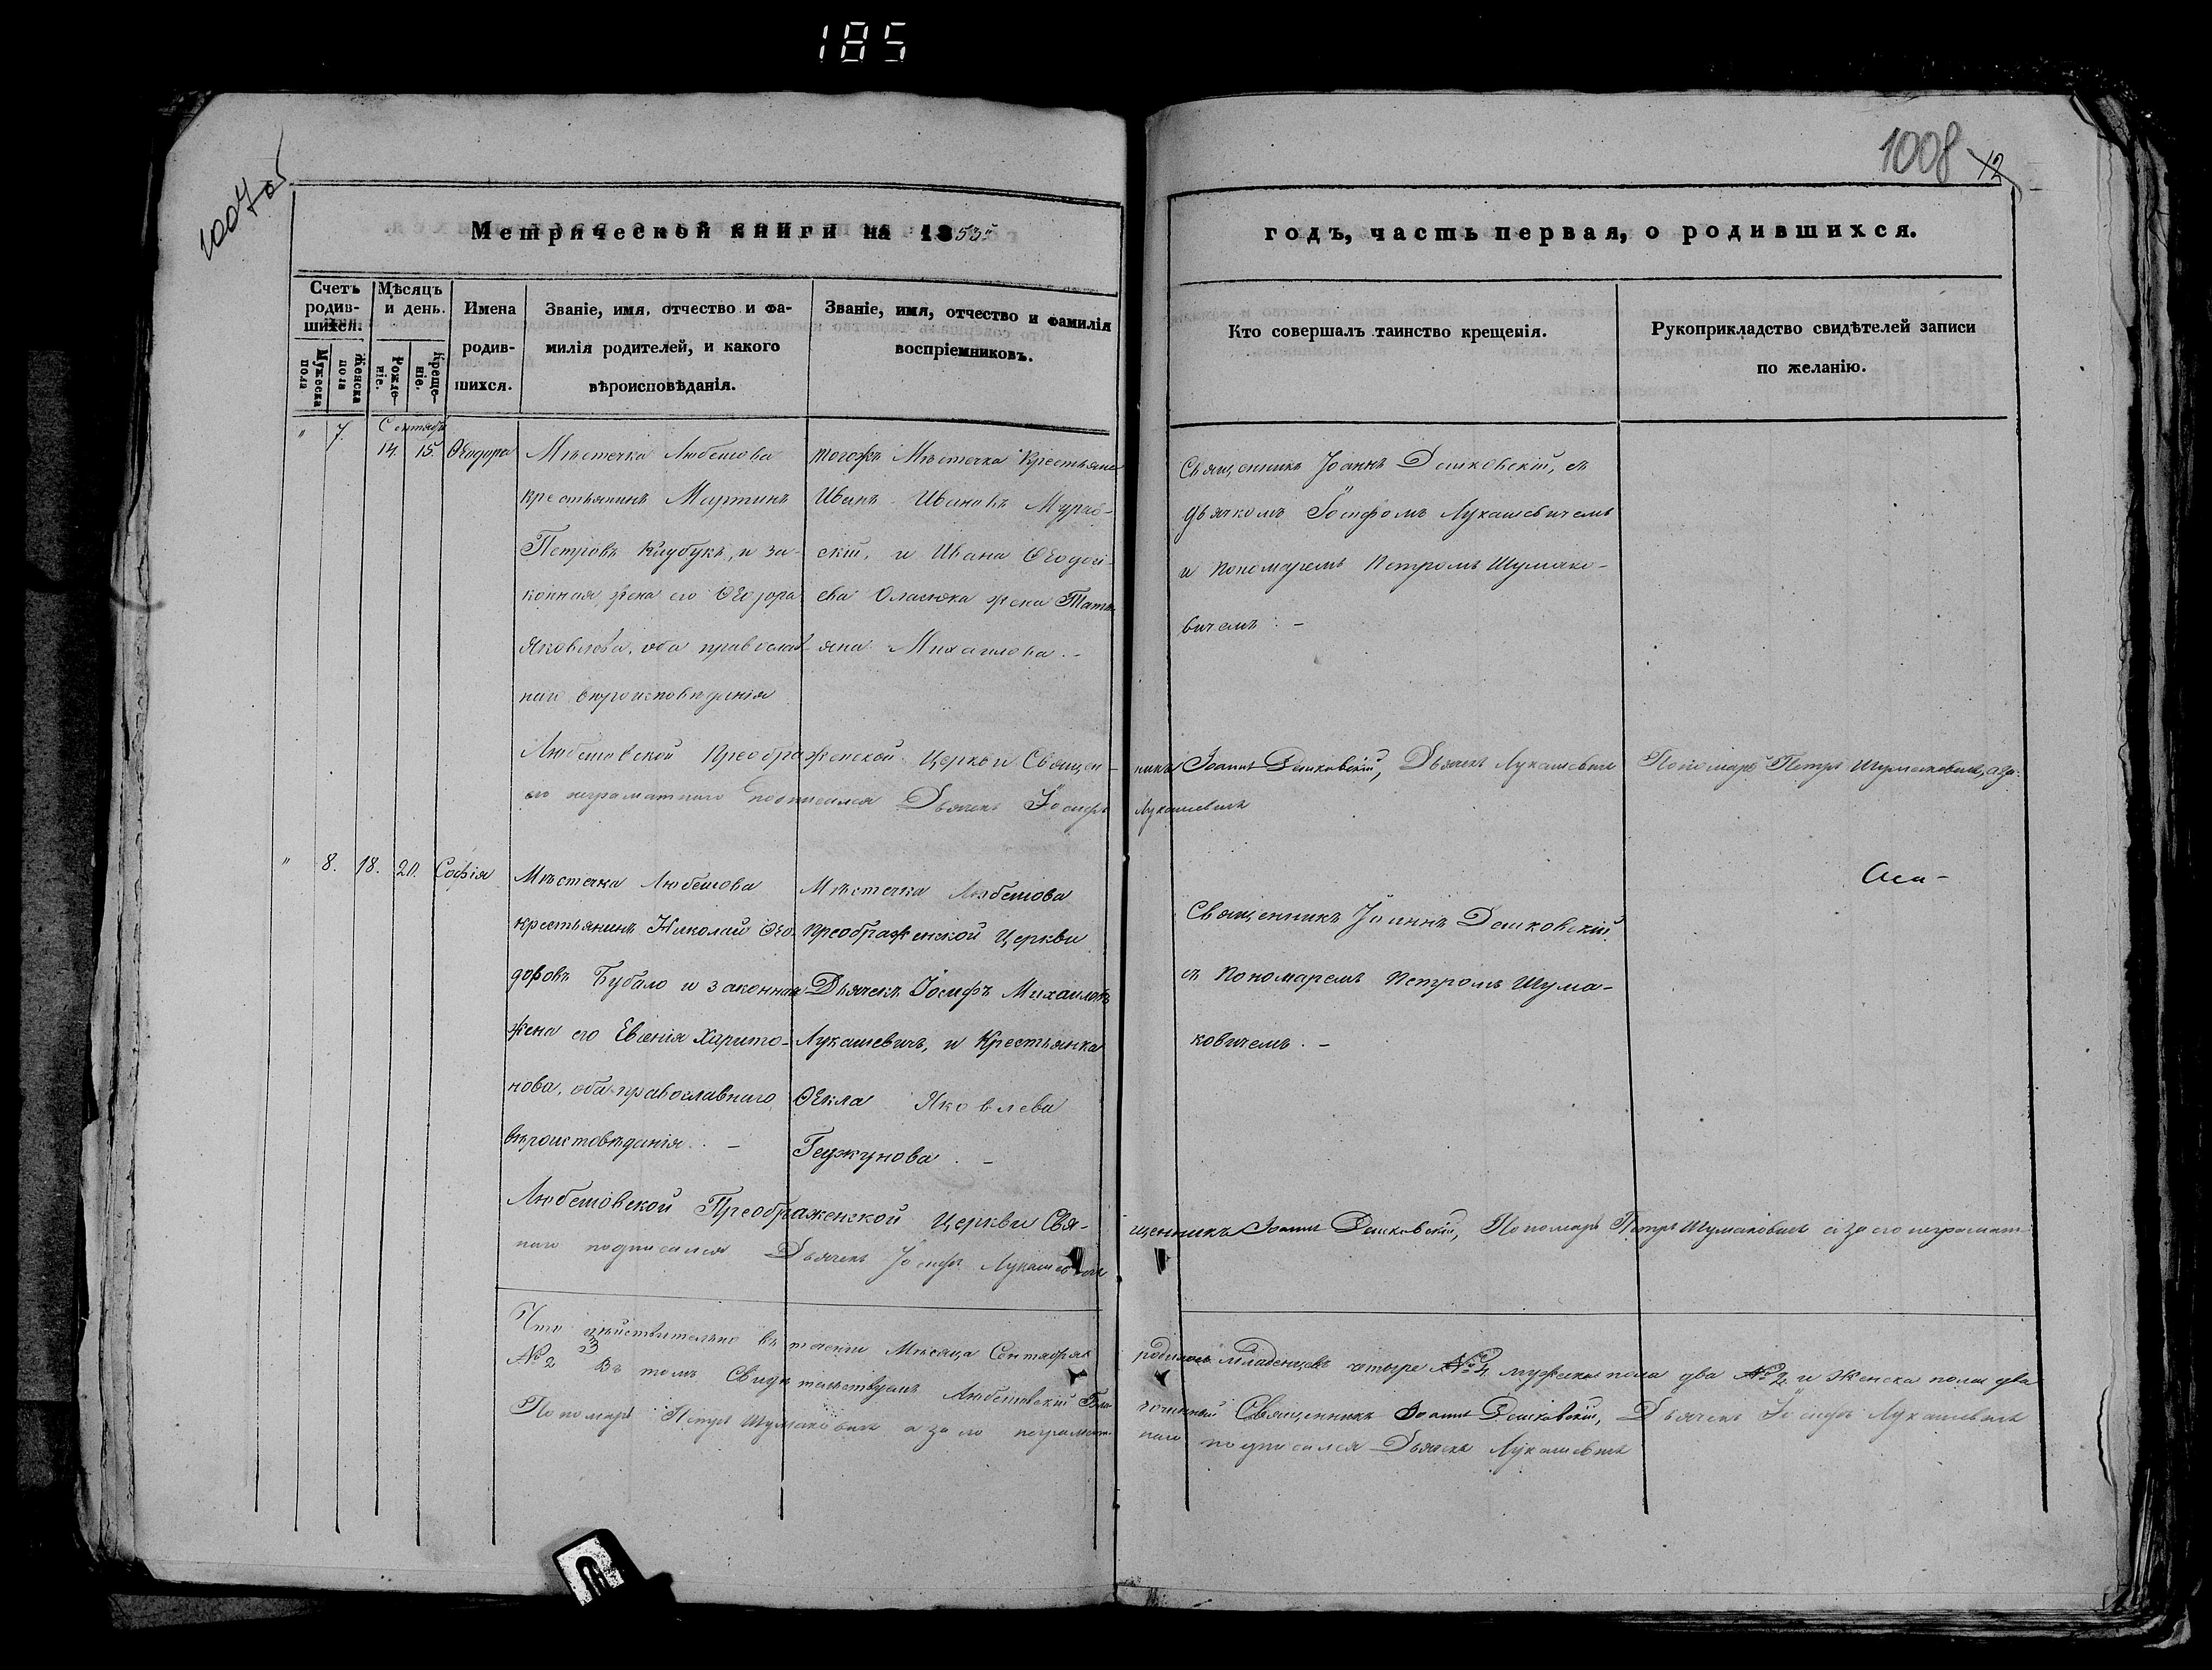 185
1007об
1008 12
Метрической книги на 1853й
годъ, часть первая, о родившихся.
Счетъ родив-шихся.
Мужеска пола
Женска пола
Мѣсяцъ и день.
Рожде-ніе.
Креще-ніе.
Имена
родив-
шихся.
Званіе, имя, отчество и фа-
милія родителей, и какого
вѣроисповѣданія.
Званіе, имя, отчество и фамилія
воспріемниковъ.
Кто совершалъ таинство крещенія.
Рукоприкладство свидѣтелей записи
по желанію.
" 7. Сентябр
14. 15. Ѳеодора
Мѣстечка Любешова
крестьянинъ Мартинъ
Петровъ и за-
конная жена его Ѳеодора
Яковлева, оба православ-
наго вѣроисповѣданія
тогожъ Мѣстечка Крестьяне
Иванъ Ивановъ
скій, и Ивана Ѳеодой-
ева жена Тать-
яна Михаилова. -
Священникъ Іоаннъ Дешковскій, съ
дьячкомъ Іосифомъ Лукашевичемъ
и пономаремъ Петромъ Шумако-
вичемъ. -
Любешовской Преображенской Церкви Священ-
никъ Іоаннъ Дешковскій, Дьячекъ Лукашевичъ Пономарь Петръ Шумаковичъ, а за
его неграматнаго подписался Дьячекъ Іосифъ
Лукашевичъ
" 8. 18. 20. Софія
Мѣстечка Любешова
крестьянинъ Николай Ѳео-
доровъ Бубало и законная
жена его Евгенія Харито-
нова, оба православнаго
вѣроисповѣданія. -
Мѣстечка Любешова
Преображенской Церкви
Дьячекъ Іосифъ Михаиловъ
Лукашевичъ, и Крестьянка
Ѳекла Яковлева
Гержунова. -
Священникъ Іоаннъ Дешковскій
съ Пономаремъ Петромъ Шума-
ковичемъ. -
Любешовской Преображенской Церкви Свя-
щенникъ Іоаннъ Дешковскій, Пономарь Петръ Шумаковичъ а за его неграмат-
наго подписался Дьячекъ Іосифъ Лукашевичъ
Что дѣйствительно въ теченіи Мѣсяца Сентября
родилось младенцевъ четыре №4, мужеска пола два №2. и женска пола два
№ 2 Въ томъ Свидѣтельствуемъ Любешовскій Бла-
гочинный Священникъ Іоаннъ Дешковскій, Дьячекъ Іосифъ Лукашевичъ
Пономарь Петръ Шумаковичъ а за его неграмат-
наго подписался Дьячекъ Лукашевичъ